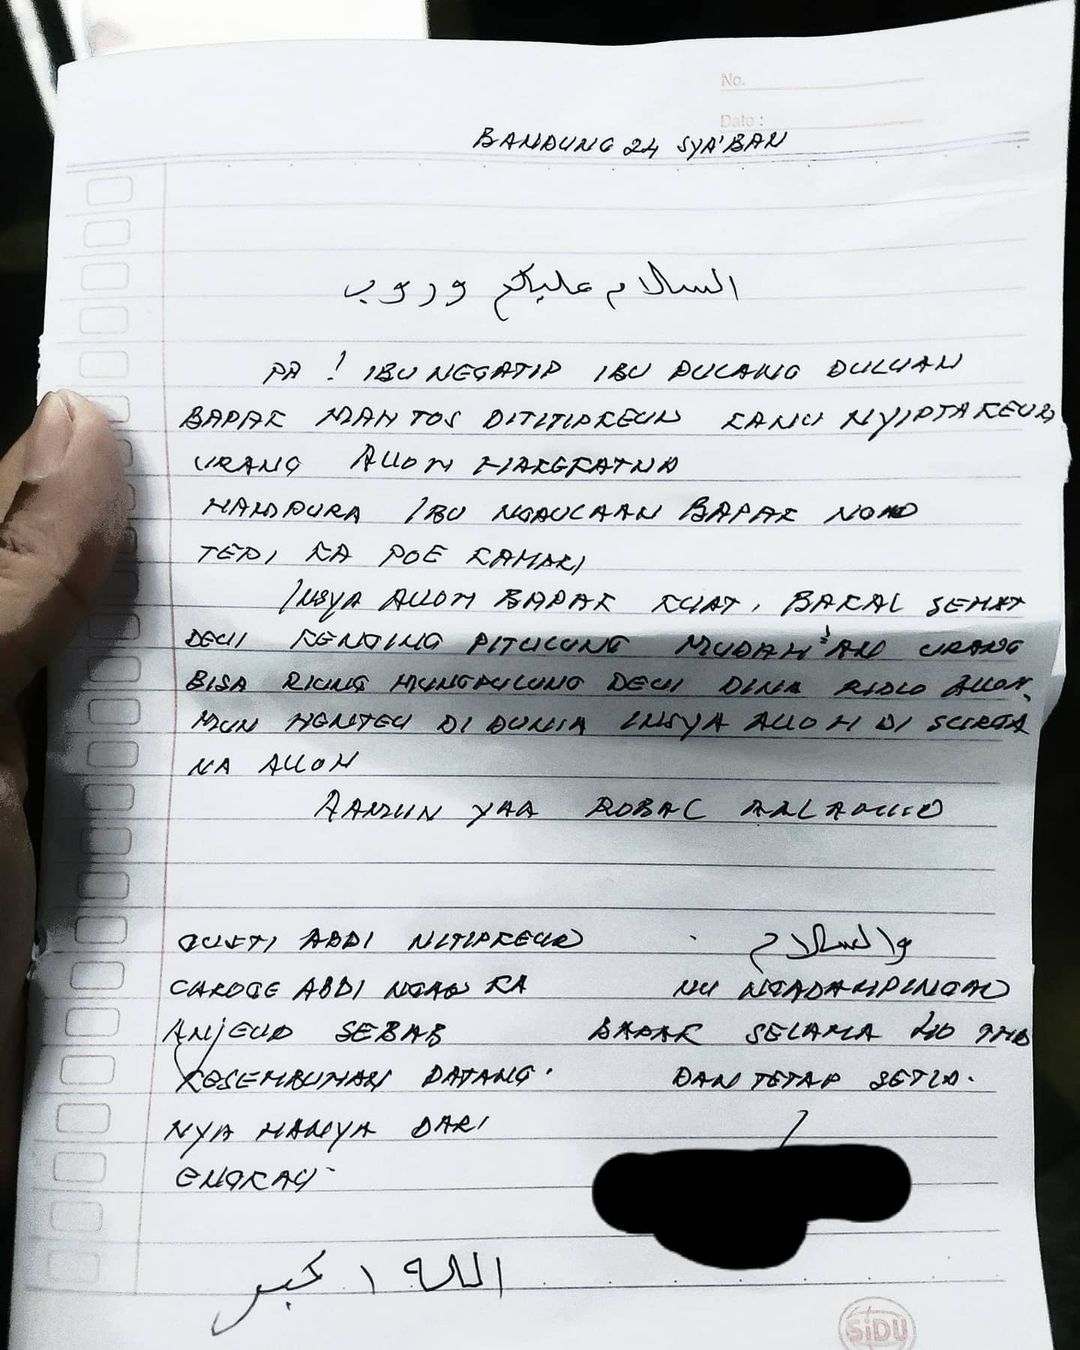 No.
Date :
BANDUNG 24 SYA'BAN
السلام عليكم وروب
PA ! IBU NEGATIP IBU PULANG DULUAN
BAPAK MANTOS DITITIPKEUN KANU NYIPTAKEUN
URANG ALLOH
HAMPURA IBU NGAULAAN BAPAK NGAN
TEPI KA POE KAMARI
INSYA ALLOH BAPAK KUAT, BAKAL SEHAT
DEUI KENGING PITULUNG MUDAH²AN URANG
BISA RIUNG MUNGPULUNG DEUI DINA RIDLO ALLOH,
MUN HENTEU DI DUNIA INSYA ALLOH DI SURGA
NA ALLOH
AAMIIN YAA ROBAL
GUSTI ABDI NITIPKEUN
CAROGE ABDI KA
ANJEUN SEBAB
KESEMBUHAN DATANG
NYA HANYA DARI
ENGKAU
والسلام
NU NGADAMPINGAN
BAPAK SELAMA 40 THN
DAN TETAP SETIA.
الله اكبر
SiDU